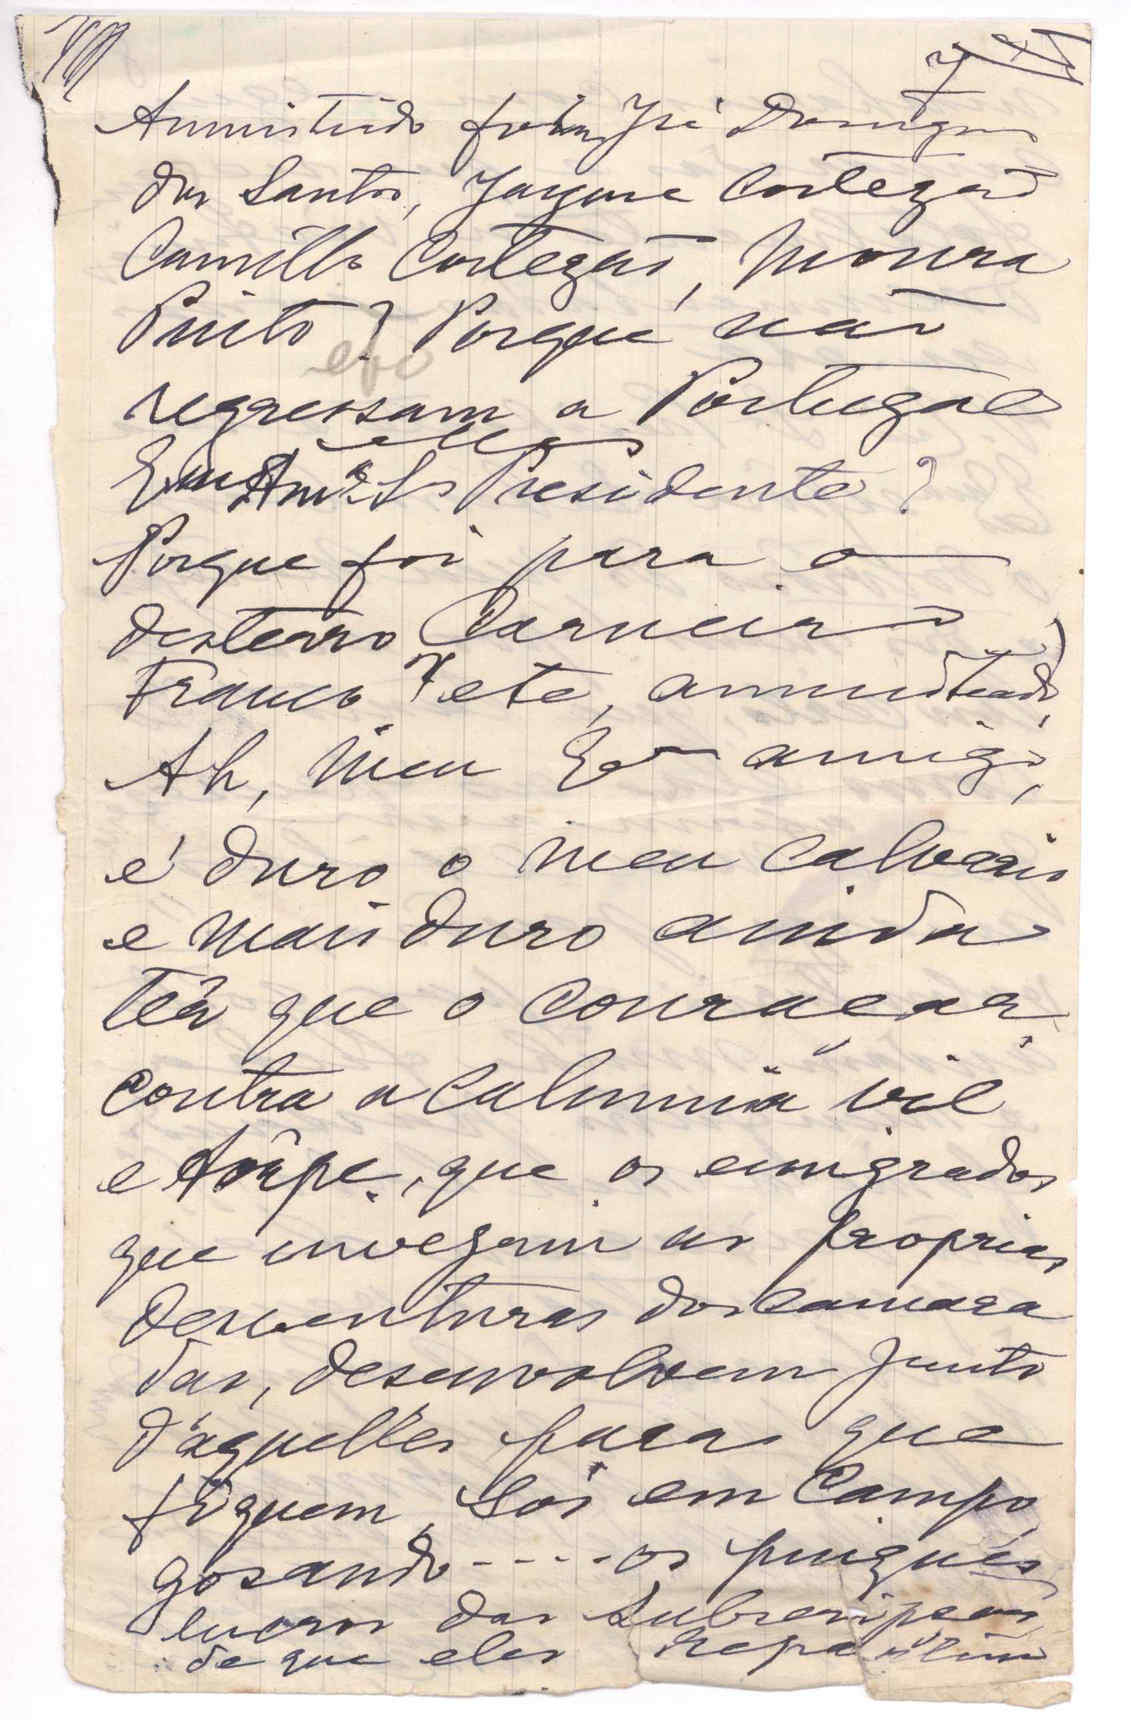 Amnistiado foi José Domingues
dos Santos, Jayme Cortezão
Camillo Cortezão, Moura
Pinto? Porque não
regressam a Portugal
elles
Presidente?
Porque foi para o
desterro Carneiro
Franco, etc, amnistiado,
Ah, meu amigo,
é duro o meu calvario
e mais duro ainda
têr que o couraçar
contra a calumnia vil
e tôrpe, que os emigrados
que invejam as proprias
desventuras dos camara
das, desenvolvem junto
d'aquelles para que
fiquem sós em campo
gosando - - - - os pingues
lucros das subscripções
de que eles